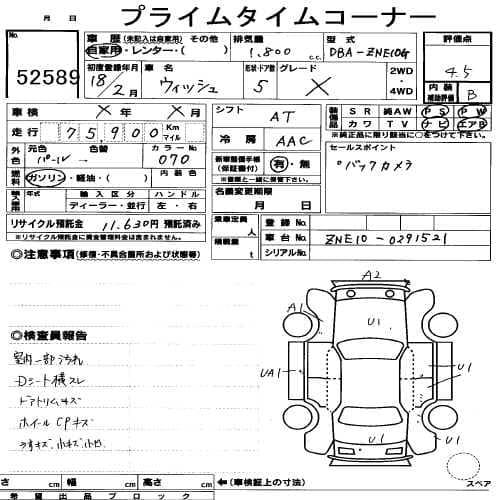 月 日 プライムタイムコーナー
No. 52589
車歴 (未記入は自家用) その他
自家用・レンター・( )
排気量 1,800 c.c.
型式 DBA-ZNE10G
評価点 4.5
初度登録年月 18/2月
車名 ウィッシュ
形状・ドア数 5
グレード X
2WD・4WD
内装補助評価 B
車検 × 年 × 月
走行 75,900 Km マイル
シフト AT
冷房 AAC
装備品 SR 純AW PS PW
カワ TV ナビ エアB
※純正品に限り該当に○をつけて下さい。
外色 元色 パール 色替 カラーNo 070
燃料 ガソリン・軽油・( ) 内装色
新車整備手帳(保証書付) 有・無
※書類と一緒に後送でも可
セールスポイント
°バックカメラ
輸入車 年式 輸入区分 ハンドル
ディーラー・並行 左・右
名義変更期限 月 日
リサイクル預託金 11,630円 預託済み
※リサイクル預託金に資金管理料金は含まれません。
乗車定員 人
積載量 t
登録No
車台No ZNE10-0291521
シリアルNo
◎注意事項 (修復・不具合箇所および状態等)
A2
A1
U1
UA1
U1
U1
U1
◎検査員報告
室内一部汚れ
Dシート横スレ
ドアトリムキズ
ホイールCPキズ
うすキズ、小キズ、小凹
スペア
さ cm 幅 cm 高さ cm ←(車検証上の寸法)
希望出品ブロック